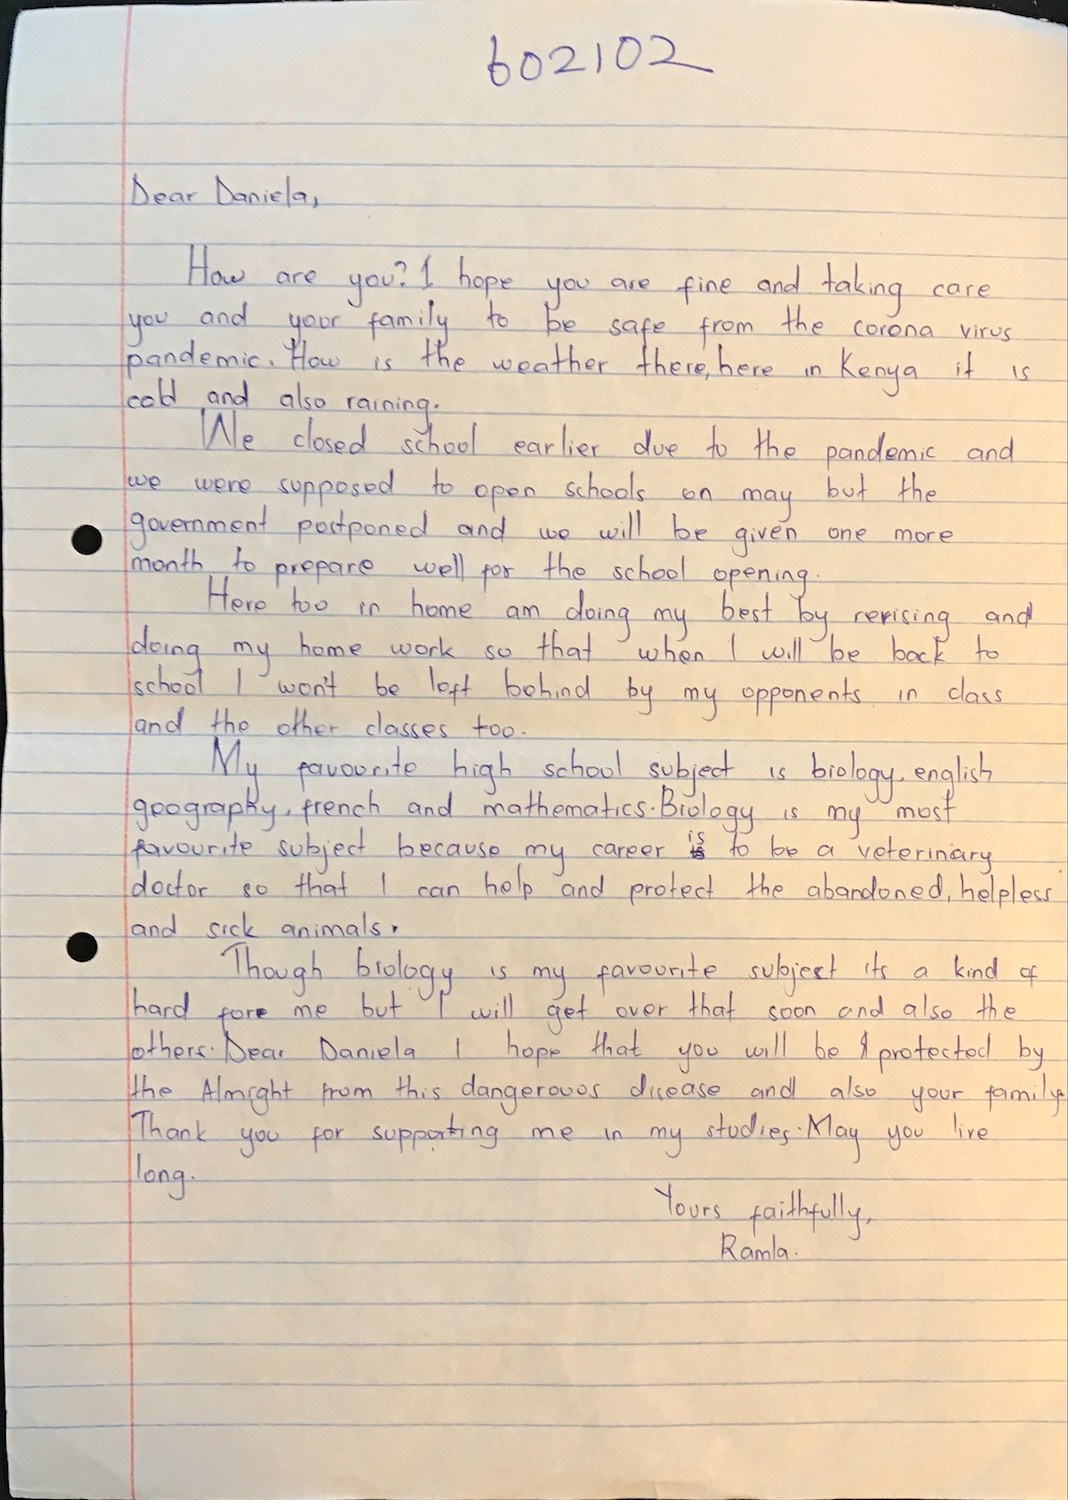 602102
Dear Daniela,
How are you? I hope you are fine and taking care
you and your family to be safe from the corona virus
pandemic. How is the weather there, here in Kenya it is
cold and also raining.
We closed school earlier due to the pandemic and
we were supposed to open schools on may but the
government postponed and we will be given one more
month to prepare well for the school opening.
Here too in home am doing my best by revising and
doing my home work so that when I will be back to
school I won't be left behind by my opponents in class
and the other classes too.
My favourite high school subject is biology, english
geography, french and mathematics. Biology is my most
favourite subject because my career is to be a veterinary
doctor so that I can help and protect the abandoned, helpless
and sick animals.
Though biology is my favourite subject its a kind of
hard fore me but I will get over that soon and also the
others. Dear Daniela I hope that you will be protected by
the Almight from this dangerouos disease and also your family
Thank you for supporting me in my studies. May you live
long.
Yours faithfully,
Ramla.